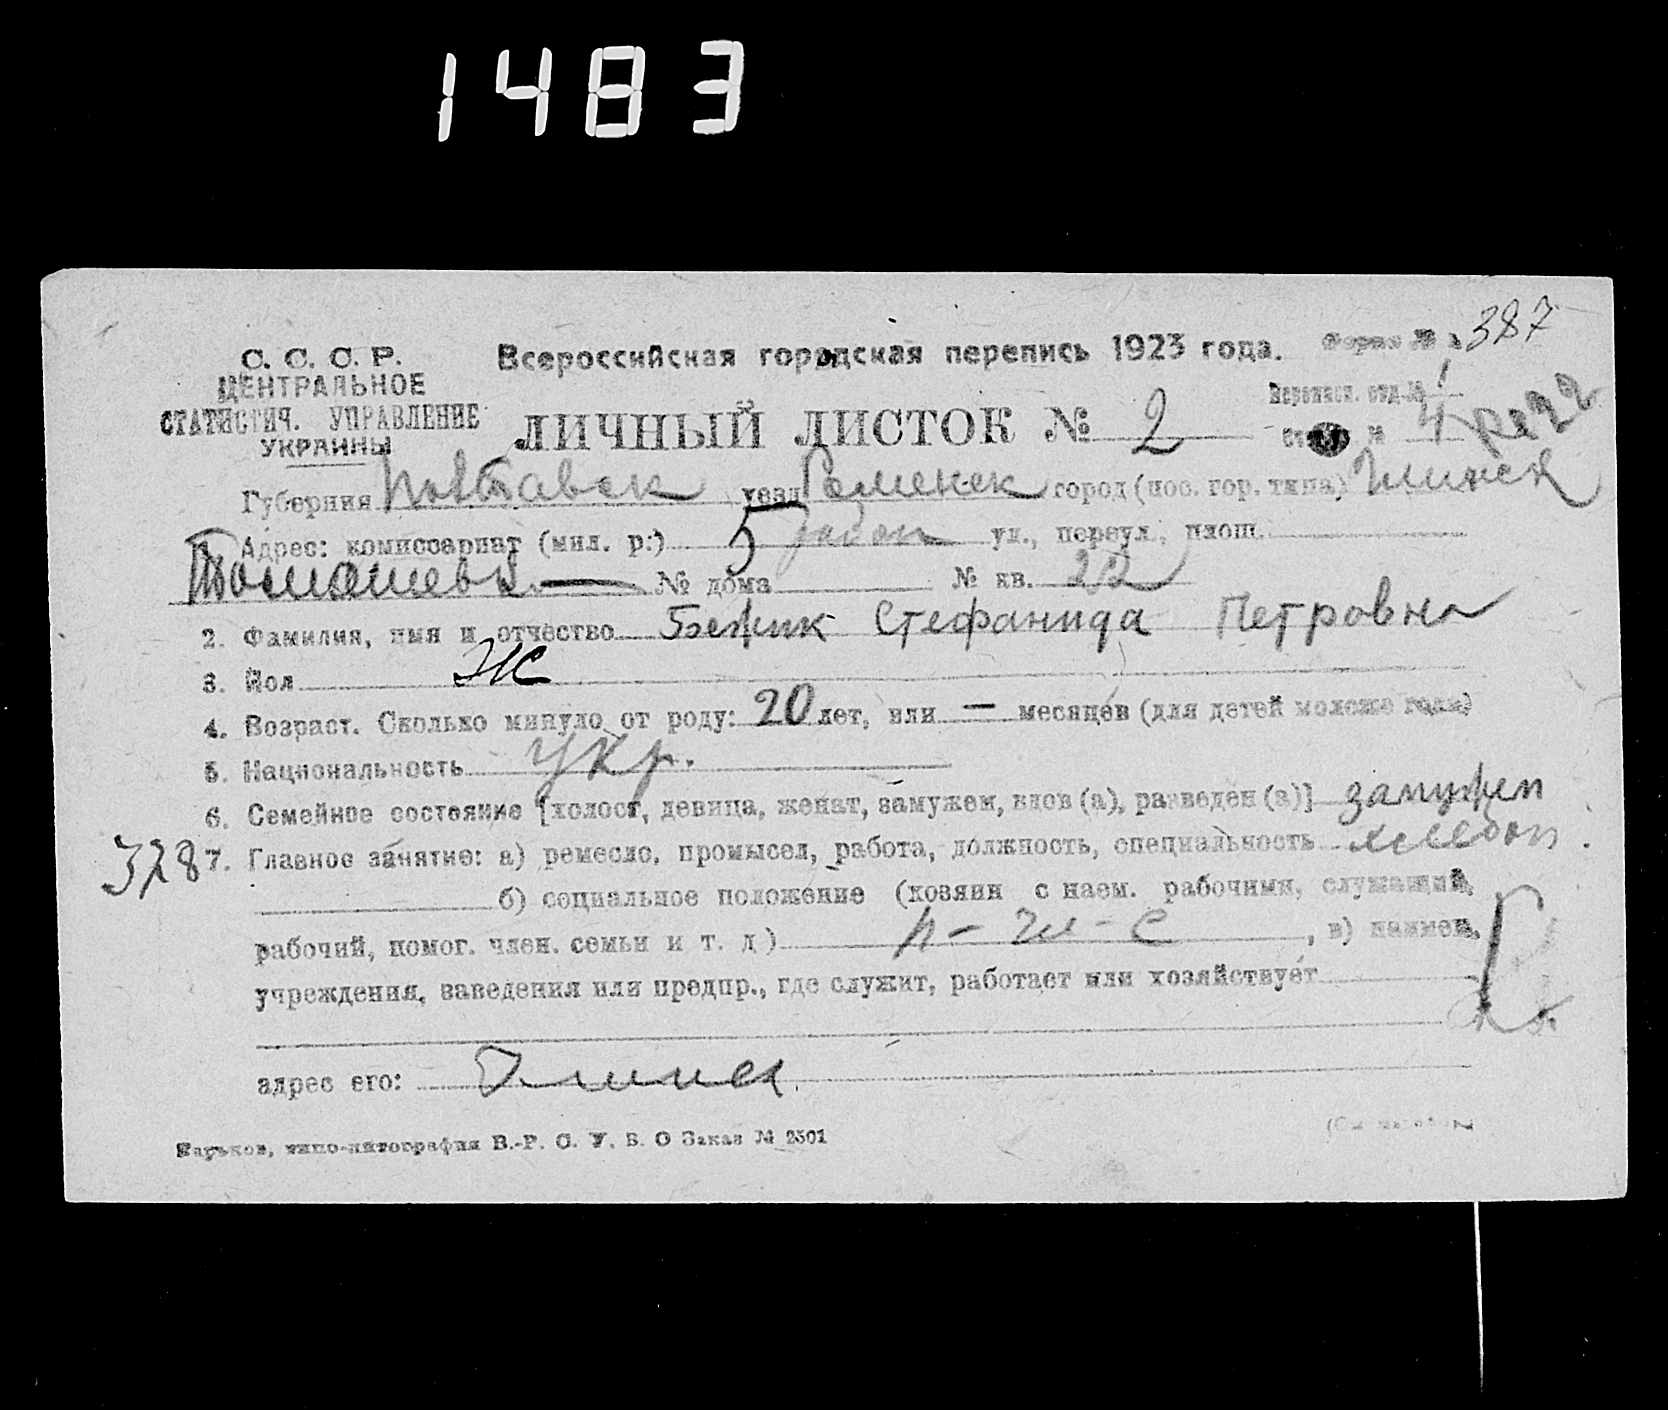 1483
С. С. С. Р.
ЦЕНТРАЛЬНОЕ
СТАТИСТИЧ. УПРАВЛЕНИЕ
УКРАИНЫ
Всероссийская городская перепись 1923 года.
Форма № 387
ЛИЧНЫЙ ЛИСТОК № 2
Переписн. отд. №
№ 4
Губерния Полтавск уезд Роменск город (пос. гор. типа) Глинск
Адрес: комиссариат (мил. р.) 5 район ул., переул., площ.
№ дома № кв. 22
2. Фамилия, имя и отчество Бежик Стефанида Петровна
3. Пол Ж
4. Возраст. Сколько минуло от роду: 20 лет, или — месяцев (для детей моложе года)
5. Национальность Укр.
6. Семейное состояние [холост, девица, женат, замужем, вдов (а), разведен (а)] замужем
328 7. Главное занятие: а) ремесло, промысел, работа, должность, специальность хлебоп.
б) социальное положение (хозяин с наем. рабочими, служащий,
рабочий, помог. член. семьи и т. д.) п - чл - с, в) наимен.
учреждения, заведения или предпр., где служит, работает или хозяйствует
адрес его: Глинск
Харьков, типо-литография В.-Р. С. У. В. О Заказ № 2501